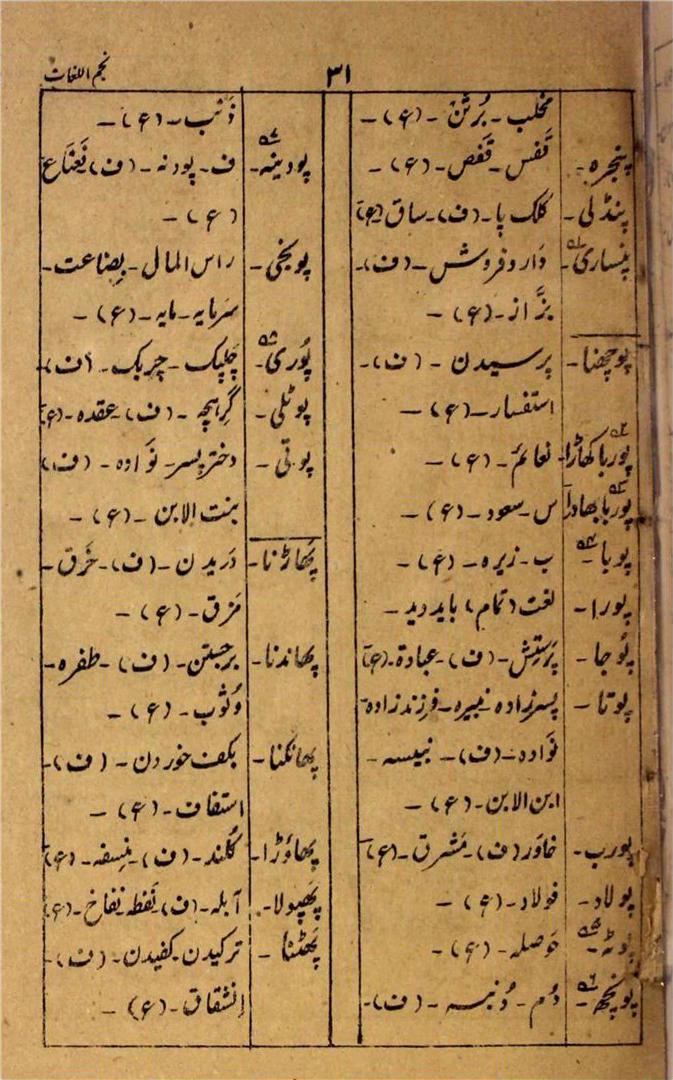 نجم اللغات
۳۱
مخلب ۔ بُرثن ۔ (ع) ۔
پنجرہ ۔ قفس ۔ قفص ۔ (ع) ۔
پنڈلی ۔ کلک پا ۔ (ف) ۔ ساق (ع)
پنساری ۔ دارو فروش ۔ (ف) ۔
بزّاز ۔ (ع) ۔
پوچھنا ۔ پرسیدن ۔ (ف) ۔
استفسار ۔ (ع) ۔
پوربا کھاڑا ۔ نعائم ۔ (ع) ۔
پوربا بھادرا س ۔ سعود ۔ (ع) ۔
پوبا ۔ ب ۔ زبرہ ۔ (ع) ۔
پورا ۔ لغت (تمام) باید دید ۔
پُوجا ۔ پرَستِش ۔ (ف) ۔ عبادۃ ۔ (ع)
پوتا ۔ پسرزادہ نبیرہ ۔ فرزند زادہ
نَوادہ ۔ (ف) ۔ نبیسہ ۔
ابن الابن ۔ (ع) ۔
پورب ۔ خاوَر (ف) ۔ مَشرق ۔ (ع)
پولاد ۔ فولاد ۔ (ع) ۔
پوٹہ ۔ حَوصلہ ۔ (ع) ۔
پونچھ ۔ دُم ۔ دُنبہ ۔ (ف) ۔
ذَنب ۔ (ع) ۔
پودینہ ۔ ف ۔ پودنہ ۔ (ف) نَعنَاع
(ع) ۔
پونجی ۔ راس المال ۔ بِضاعت ۔
سَرمایہ ۔ مایہ ۔ (ع) ۔
پُوری ۔ چَلپک ۔ چربک ۔ (ف)
پوٹلی ۔ گرِہچہ ۔ (ف) ۔ عقدہ ۔ (ع)
پوتی ۔ دختر پسر ۔ نَوادہ ۔ (ف)
بنت الابن ۔ (ع) ۔
پھَاڑنا ۔ دَریدن ۔ (ف) ۔ خَرق ۔
مَزق ۔ (ع) ۔
پھاندنا ۔ برجستن ۔ (ف) ۔ طفرہ ۔
وُثوب ۔ (ع) ۔
پھانکنا ۔ بکف خوردن ۔ (ف) ۔
استفاف ۔ (ع) ۔
پھاؤڑا ۔ کُلند ۔ (ف) ۔ مِنسفہ ۔ (ع)
پھَپولا ۔ آبلہ ۔ (ف) نَفطہ نفاخ ۔ (ع)
پھَٹنا ۔ ترکیدن کفیدن ۔ (ف) ۔
اِنشقاق ۔ (ع) ۔